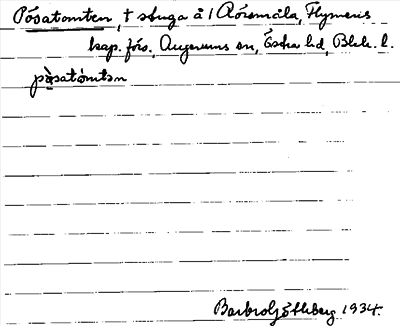 Påsatomten, † stuga å 1 Rörsmåla, Flymens
kap. förs., Augerums sn, Östra hd, Blek. l.
påsatómtən
Barbro Göthberg 1934.